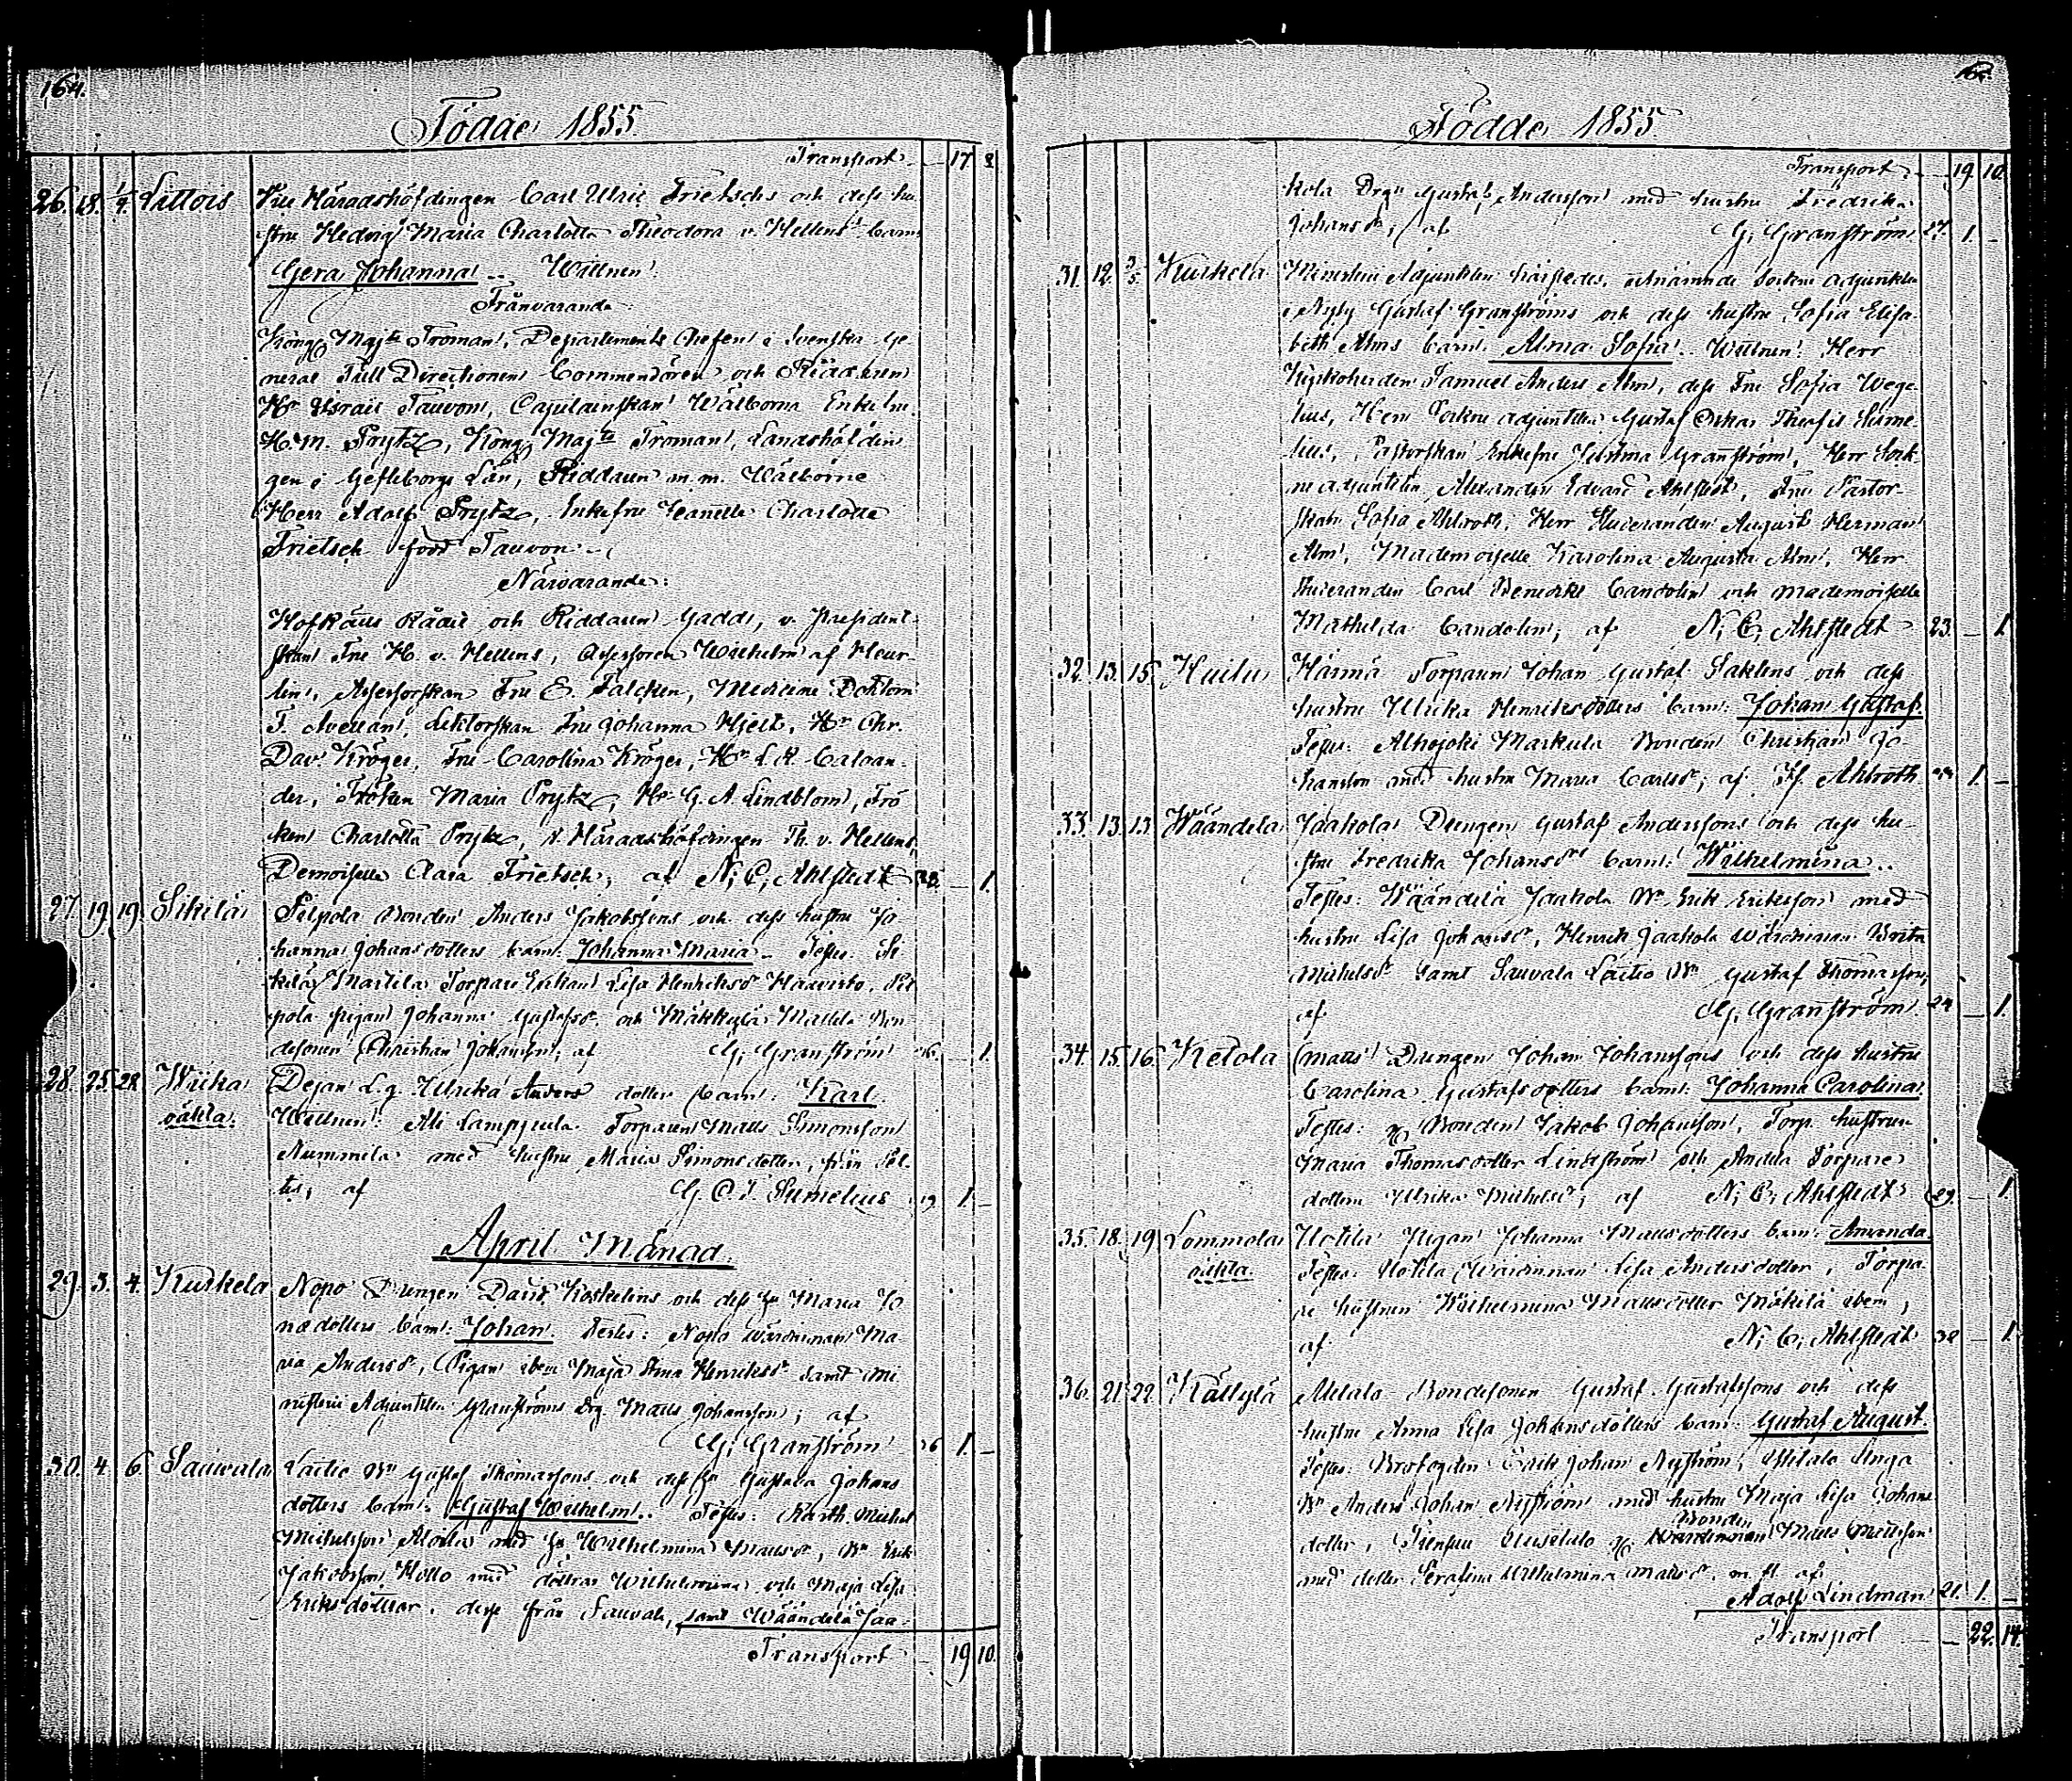 164.
Födde 1855.
Transport 17 8
26. 18. 1/4. Littois Vice Häradshöfdingen Carl Ulric Frietschs och dess hu-
stru Hedvig Maria Charlotta Theodora v. Hellens barn
Gera Johanna. Wittnen:
Frånvarande:
Kongl Majts Troman, Departements Chefen i Svenska Ge-
neral Tull Directionen Commendören och Riddaren
Hr Israel Tauvon, Capitainskan Wälborna Enkefru
H. M. Prytz, Kongl Majts Troman, Landshöfdin
gen i Gefleborgs Län, Riddaren m. m. Wälborne
Herr Adolf Prytz, Enkefru Jeanette Charlotte
Frietsch född Tauvon.
Närvarande:
Hofrätts Rådet och Riddaren Gadd, v. President-
skan Fru H. v. Hellens, Assessoren Wilhelm af Heur-
lin, Assessorskan Fru E. Falcken, Medicine Doktorn
F. Avellan, Lektorskan Fru Johanna Hjelt, Hr Chr.
Dav. Kröger, Fru Carolina Kröger, Hr L. R. Caloan-
der, Fröken Maria Prytz, Hr G. A. Lindblom, Frö
ken Charlotta Prytz, v. Häradshöfdingen Th. v. Hellens,
Demoiselle Clara Frietsch; af N. C. Ahlstedt 28. 1.
27. 19. 19. Sikilä Pilpola Bonden Anders Jakobssons och dess hustru Jo
hanna Johansdotters barn: Johanna Maria. Testes: Si-
kilä Martila Torpare Enkan Lisa Henriksdr Haavisto, Pil
pola pigan Johanna Gustafsdr och Mäkkylä Mattila Bon
desonen Christian Johansson; af G. Granström 36. 1.
28. 25. 28. Wiika Dejan L. g. Ulrika Anders dotter barn: Karl.
oäkta. Wittnen: Ali Lampjuula Torparen Matts Simonsson
Nummila med hustru Maria Simonsdotter, från Pöl-
tis; af G. O. T. Sumelius 19 1.
April Månad.
29. 3. 4. Kurkela Nopo Drengen David Koskelins och dess hu Maria Jo
nædotters barn: Johan. Testes: Nopo wärdinnan Ma-
ria Andersdr, Pigan ibm Maja Stina Henriksdr samt Mi
nisterii Adjunkten Granströms drg. Matts Johansson; af
G. Granström 26 1.
30. 4. 6. Sauvala Laitio Bn Gustaf Thomassons och dess hu Gustava Johans
dotters barn: Gustaf Wilhelm. Testes: Rusth. Michel
Michelsson Alotila med hu Wilhelmina Mattsdr, Bn Erik
Jakobsson Hollo med döttrar Wilhelmina och Maja Lisa
Eriksdöttrar, desse från Sauvala, samt Wäändelä Jaa-
Transport 19 10.
165.
Födde 1855.
Transport 19. 10.
kola Drgn Gustaf Andersson med hustru Fredrika
Johansdr; af G. Granström 27. 1.
31. 12. 3/5. Kurkela Ministerii Adjunkten härstedes, utnämnde Socken adjunkten
i Nyby Gustaf Granströms och dess hustru Sofia Elisa-
beth Alms barn: Alma Sofia. Wittnen: Herr
Kyrkoherden Samuel Anders Alm, dess Fru Sofia Wege-
lius, Herr Sockne adjunkten Gustaf Oskar Thiofis Sume-
lius, Pastorskan Enkefru Jakobina Granström, Herr Sock-
ne adjunkten Alexander Edvard Ahlstedt, Fru Pastor-
skan Sofia Ahlroth, Herr Studeranden August Herman
Alm, Mademoiselle Karolina Augusta Alm, Herr
Studeranden Carl Benedikt Candolin och Mademoiselle
Mathilda Candolin; af N. C. Ahlstedt 23. 1.
32. 13. 15. Huilu Härmä Torparen Johan Gustaf Saklens och dess
hustru Ulrika Henriksdotters barn: Johan Gustaf.
Testes: Alhojoki Markula Bonden Christian Jo-
hansson med hustru Maria Carlsdr; af If. Ahlroth 1.
33. 13. 13 Wäändelä Jaakola Drengen Gustaf Anderssons och dess hu-
stru Fredrika Johansdrs barn: Wilhelmina.
Testes: Wäändelä Jaakola Bn Erik Eriksson med
hustru Lisa Johansdr, Henrik Jaakola wärdinnan Brita
Michelsdr samt Sauvala Laitio Bn Gustaf Thomasson,
af G. Granström 24 1.
34. 15. 16. Ketola Matts Drengen Johan Johanssons och dess hustru
Carolina Gustafsdotters barn: Johanna Carolina.
Testes: Bonden Jakob Johansson, Torp. hustrun
Maria Thomasdotter Lindström och Andela Torpare
dottern Ulrika Michelsdr; af N. C. Ahlstedt 29. 1.
35. 18. 19 Lommola Uotila Pigan Johanna Mattsdotters barn: Amanda.
oäkta. Testes: Uotila Wärdinnan Lisa Andersdotter, Torpa
re hustrun Wilhelmina Mattsdotter Mäkilä ibem,
af N. C. Ahlstedt 38 1.
36. 21. 22. Källylä Alitalo Bondesonen Gustaf Gustafssons och dess
hustru Anna Lisa Johansdotters barn: Gustaf August.
Testes: Brofogden Erik Johan Nyström, Ylitalo Unga
Bn Anders Johan Nyström med hustru Maja Lisa Johans
Bonden
dotter, Uusitalo Wärdinnan Matts Mattsson
med dotter Serafina Wilhelmina Mattsdr m. fl. af
Adolf Lindman 21. 1.
Transport 22. 14.